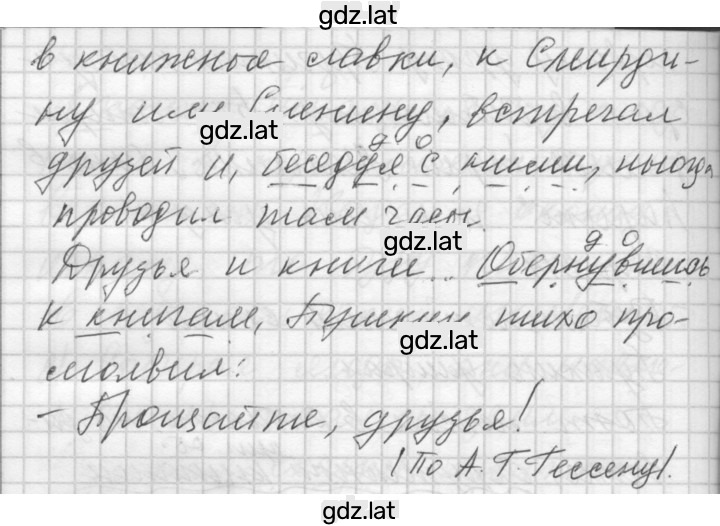 gdz.lat
в книжные лавки, к Смирди-
ну или Сленину, встречал
gdz.lat
д о
друзей и, беседуя с ними, иногда
проводил там часы.
gdz.lat
д о
Друзья и книги... Обернувшись
к книгам, Пушкин тихо про-
gdz.lat
молвил:
– Прощайте, друзья!
(По А. Г. Гессену).
gdz.lat